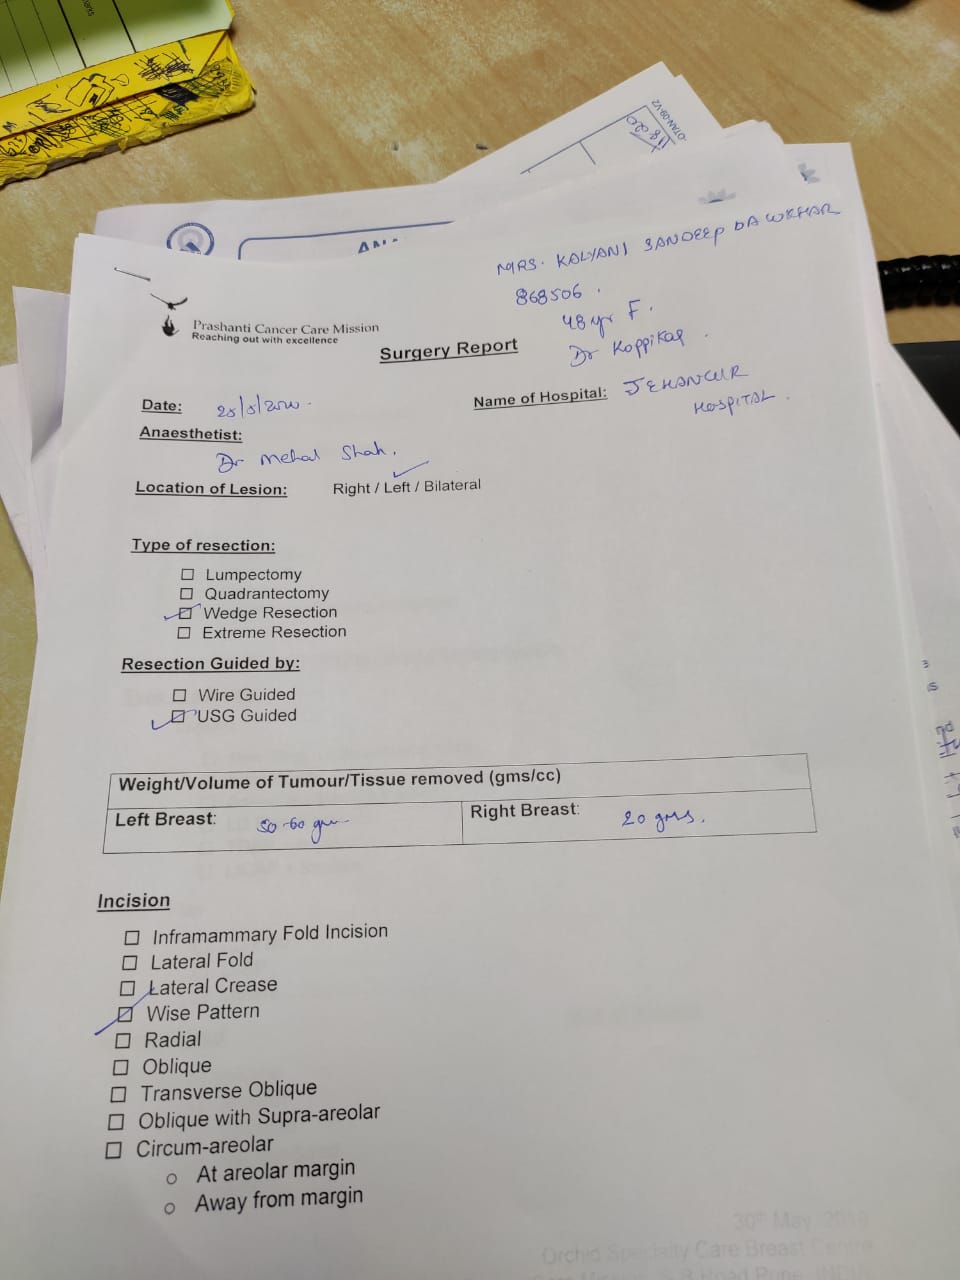 MRS. KALYANI SANDEEP DAWKHAR
868506.
48 yr F.
Dr Koppikar.
Prashanti Cancer Care Mission
Reaching out with excellence
Surgery Report
Date:
Name of Hospital: JEHANGIR
HOSPITAL.
Anaesthetist:
Dr Mehal Shah.
Location of Lesion: Right / Left / Bilateral
Type of resection:
Lumpectomy
Quadrantectomy
Wedge Resection
Extreme Resection
Resection Guided by:
Wire Guided
USG Guided
Weight/Volume of Tumour/Tissue removed (gms/cc)
Left Breast: 50-60 gm
Right Breast: 20 gms.
Incision
Inframammary Fold Incision
Lateral Fold
Lateral Crease
Wise Pattern
Radial
Oblique
Transverse Oblique
Oblique with Supra-areolar
Circum-areolar
At areolar margin
Away from margin
Orchid Specialty Care Breast Centre